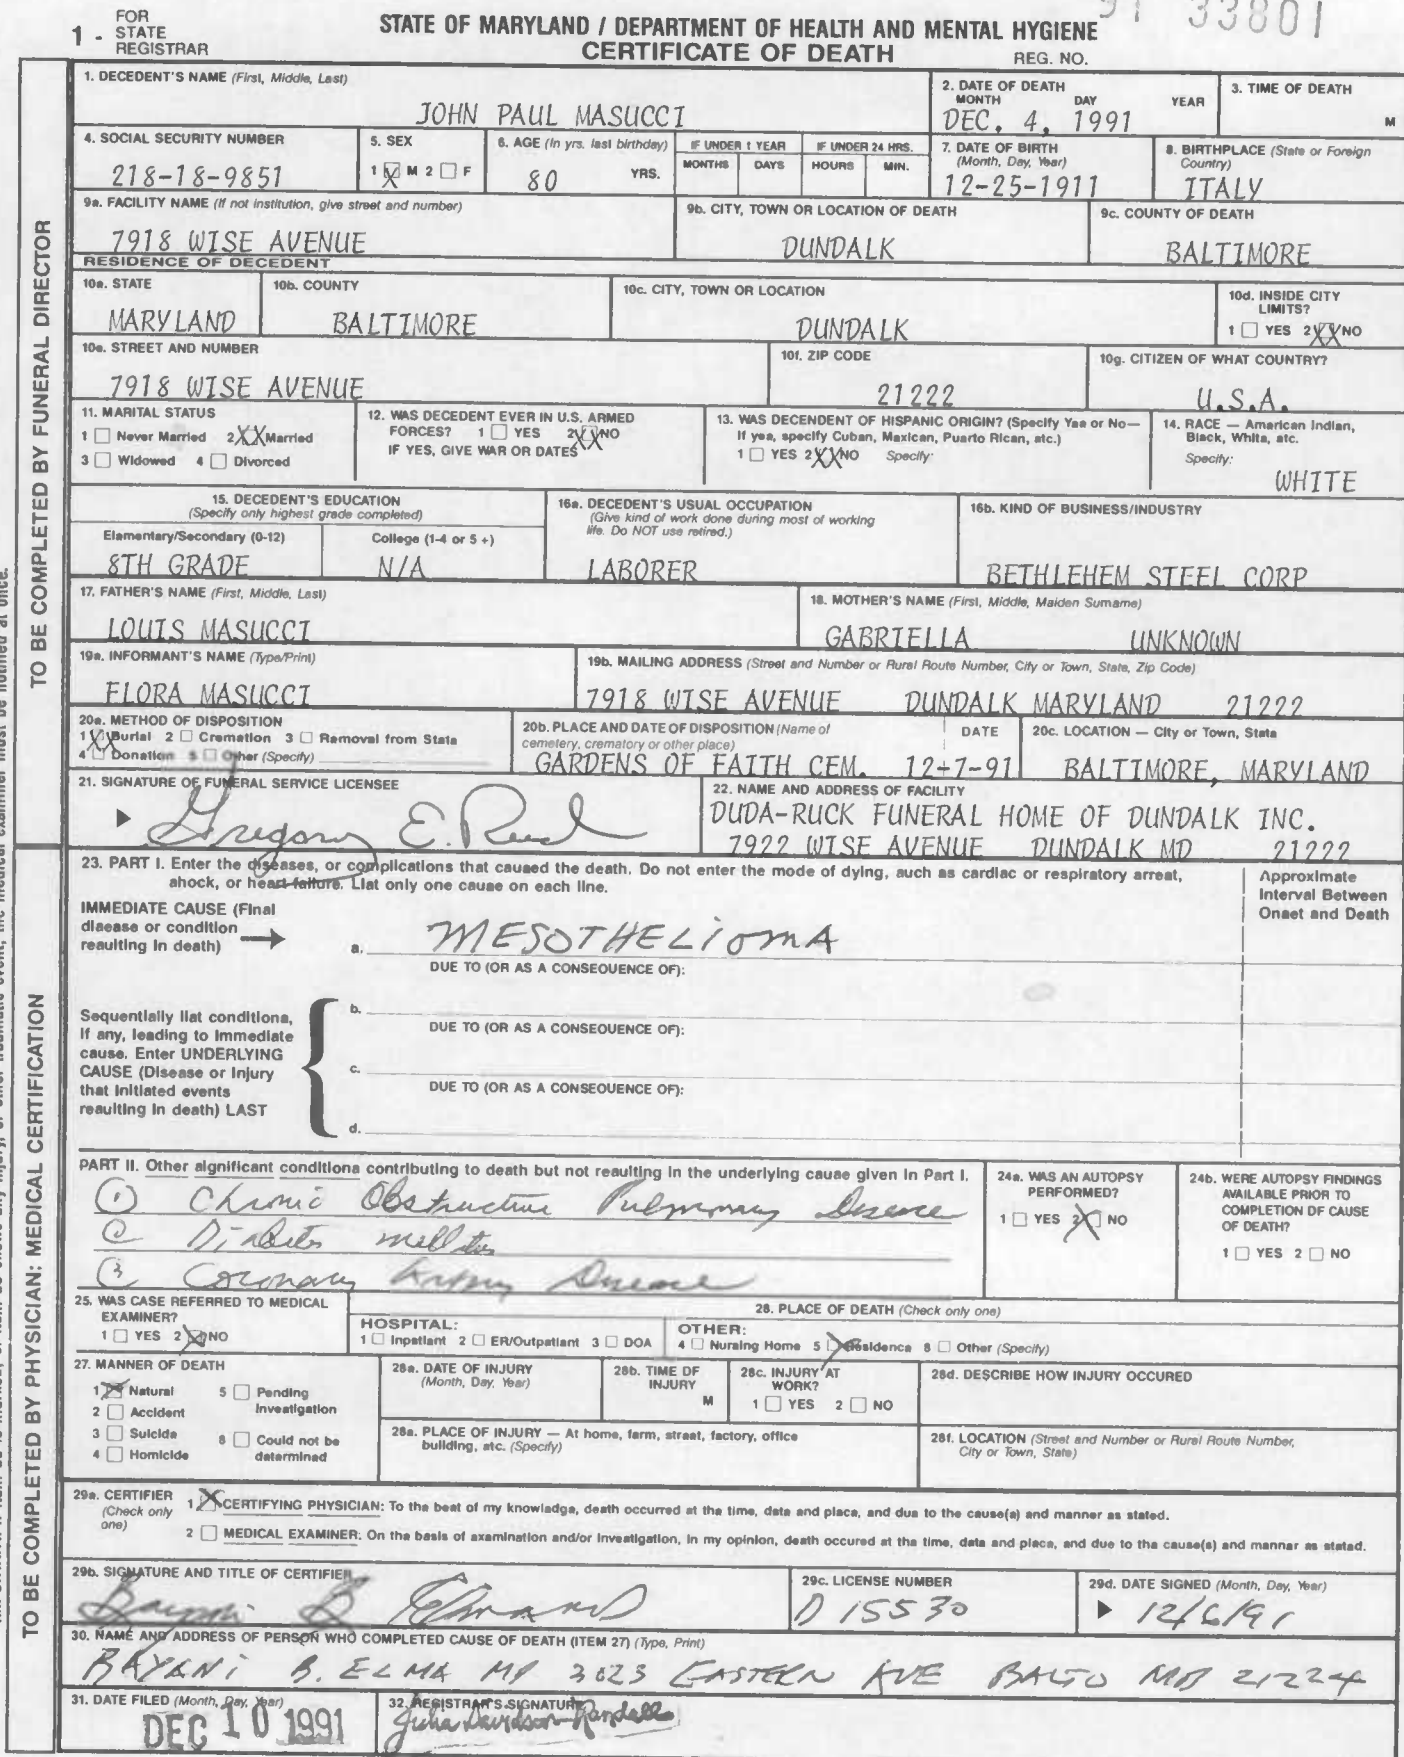 91 33801
1 - FOR STATE REGISTRAR
STATE OF MARYLAND / DEPARTMENT OF HEALTH AND MENTAL HYGIENE
CERTIFICATE OF DEATH
REG. NO.
TO BE COMPLETED BY FUNERAL DIRECTOR
1. DECEDENT'S NAME (First, Middle, Last)
JOHN PAUL MASUCCI
2. DATE OF DEATH
MONTH DAY YEAR
DEC. 4, 1991
3. TIME OF DEATH
M
4. SOCIAL SECURITY NUMBER
218-18-9851
5. SEX
1 X M 2 ☐ F
6. AGE (In yrs. last birthday)
80 YRS.
IF UNDER 1 YEAR
MONTHS DAYS
IF UNDER 24 HRS.
HOURS MIN.
7. DATE OF BIRTH
(Month, Day, Year)
12-25-1911
8. BIRTHPLACE (State or Foreign Country)
ITALY
9a. FACILITY NAME (If not institution, give street and number)
7918 WISE AVENUE
9b. CITY, TOWN OR LOCATION OF DEATH
DUNDALK
9c. COUNTY OF DEATH
BALTIMORE
RESIDENCE OF DECEDENT
10a. STATE
MARYLAND
10b. COUNTY
BALTIMORE
10c. CITY, TOWN OR LOCATION
DUNDALK
10d. INSIDE CITY LIMITS?
1 ☐ YES 2 XX NO
10e. STREET AND NUMBER
7918 WISE AVENUE
10f. ZIP CODE
21222
10g. CITIZEN OF WHAT COUNTRY?
U.S.A.
11. MARITAL STATUS
1 ☐ Never Married 2 XX Married
3 ☐ Widowed 4 ☐ Divorced
12. WAS DECEDENT EVER IN U.S. ARMED
FORCES? 1 ☐ YES 2 XX NO
IF YES, GIVE WAR OR DATES
13. WAS DECENDENT OF HISPANIC ORIGIN? (Specify Yes or No—
If yes, specify Cuban, Mexican, Puerto Rican, etc.)
1 ☐ YES 2 XX NO Specify:
14. RACE — American Indian,
Black, White, etc.
Specify:
WHITE
15. DECEDENT'S EDUCATION
(Specify only highest grade completed)
Elementary/Secondary (0-12)
8TH GRADE
College (1-4 or 5 +)
N/A
16a. DECEDENT'S USUAL OCCUPATION
(Give kind of work done during most of working
life. Do NOT use retired.)
LABORER
16b. KIND OF BUSINESS/INDUSTRY
BETHLEHEM STEEL CORP
17. FATHER'S NAME (First, Middle, Last)
LOUIS MASUCCI
18. MOTHER'S NAME (First, Middle, Maiden Surname)
GABRIELLA UNKNOWN
19a. INFORMANT'S NAME (Type/Print)
FLORA MASUCCI
19b. MAILING ADDRESS (Street and Number or Rural Route Number, City or Town, State, Zip Code)
7918 WISE AVENUE DUNDALK MARYLAND 21222
20a. METHOD OF DISPOSITION
1 XX Burial 2 ☐ Cremation 3 ☐ Removal from State
4 ☐ Donation 5 ☐ Other (Specify)
20b. PLACE AND DATE OF DISPOSITION (Name of
cemetery, crematory or other place) DATE
GARDENS OF FAITH CEM. 12-7-91
20c. LOCATION — City or Town, State
BALTIMORE, MARYLAND
21. SIGNATURE OF FUNERAL SERVICE LICENSEE
Gregory E. Ruck
22. NAME AND ADDRESS OF FACILITY
DUDA-RUCK FUNERAL HOME OF DUNDALK INC.
7922 WISE AVENUE DUNDALK MD 21222
TO BE COMPLETED BY PHYSICIAN: MEDICAL CERTIFICATION
23. PART I. Enter the diseases, or complications that caused the death. Do not enter the mode of dying, such as cardiac or respiratory arrest,
shock, or heart failure. List only one cause on each line.
Approximate
Interval Between
Onset and Death
IMMEDIATE CAUSE (Final
disease or condition
resulting in death)
a. MESOTHELIOMA
DUE TO (OR AS A CONSEQUENCE OF):
Sequentially list conditions,
if any, leading to immediate
cause. Enter UNDERLYING
CAUSE (Disease or Injury
that initiated events
resulting in death) LAST
b.
DUE TO (OR AS A CONSEQUENCE OF):
c.
DUE TO (OR AS A CONSEQUENCE OF):
d.
PART II. Other significant conditions contributing to death but not resulting in the underlying cause given in Part I.
① Chronic Obstructive Pulmonary Disease
② Diabetes mellitus
③ Coronary Artery Disease
24a. WAS AN AUTOPSY
PERFORMED?
1 ☐ YES 2 X NO
24b. WERE AUTOPSY FINDINGS
AVAILABLE PRIOR TO
COMPLETION OF CAUSE
OF DEATH?
1 ☐ YES 2 ☐ NO
25. WAS CASE REFERRED TO MEDICAL
EXAMINER?
1 ☐ YES 2 X NO
26. PLACE OF DEATH (Check only one)
HOSPITAL:
1 ☐ Inpatient 2 ☐ ER/Outpatient 3 ☐ DOA
OTHER:
4 ☐ Nursing Home 5 X Residence 6 ☐ Other (Specify)
27. MANNER OF DEATH
1 X Natural 5 ☐ Pending Investigation
2 ☐ Accident
3 ☐ Suicide 6 ☐ Could not be determined
4 ☐ Homicide
28a. DATE OF INJURY
(Month, Day, Year)
28b. TIME OF
INJURY
M
28c. INJURY AT
WORK?
1 ☐ YES 2 ☐ NO
28d. DESCRIBE HOW INJURY OCCURED
28e. PLACE OF INJURY — At home, farm, street, factory, office
building, etc. (Specify)
28f. LOCATION (Street and Number or Rural Route Number,
City or Town, State)
29a. CERTIFIER
(Check only
one)
1 X CERTIFYING PHYSICIAN: To the best of my knowledge, death occurred at the time, date and place, and due to the cause(s) and manner as stated.
2 ☐ MEDICAL EXAMINER: On the basis of examination and/or investigation, in my opinion, death occured at the time, date and place, and due to the cause(s) and manner as stated.
29b. SIGNATURE AND TITLE OF CERTIFIER
29c. LICENSE NUMBER
D 15530
29d. DATE SIGNED (Month, Day, Year)
12/6/91
30. NAME AND ADDRESS OF PERSON WHO COMPLETED CAUSE OF DEATH (ITEM 27) (Type, Print)
BAYANI B. ELMA MD 3023 EASTERN AVE BALTO MD 21224
31. DATE FILED (Month, Day, Year)
DEC 10 1991
32. REGISTRAR'S SIGNATURE
Julia Davidson-Randall